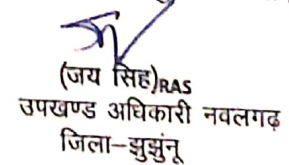 (जय सिंह)RAS
उपखण्ड अधिकारी नवलगढ़
जिला-झुझुंनू